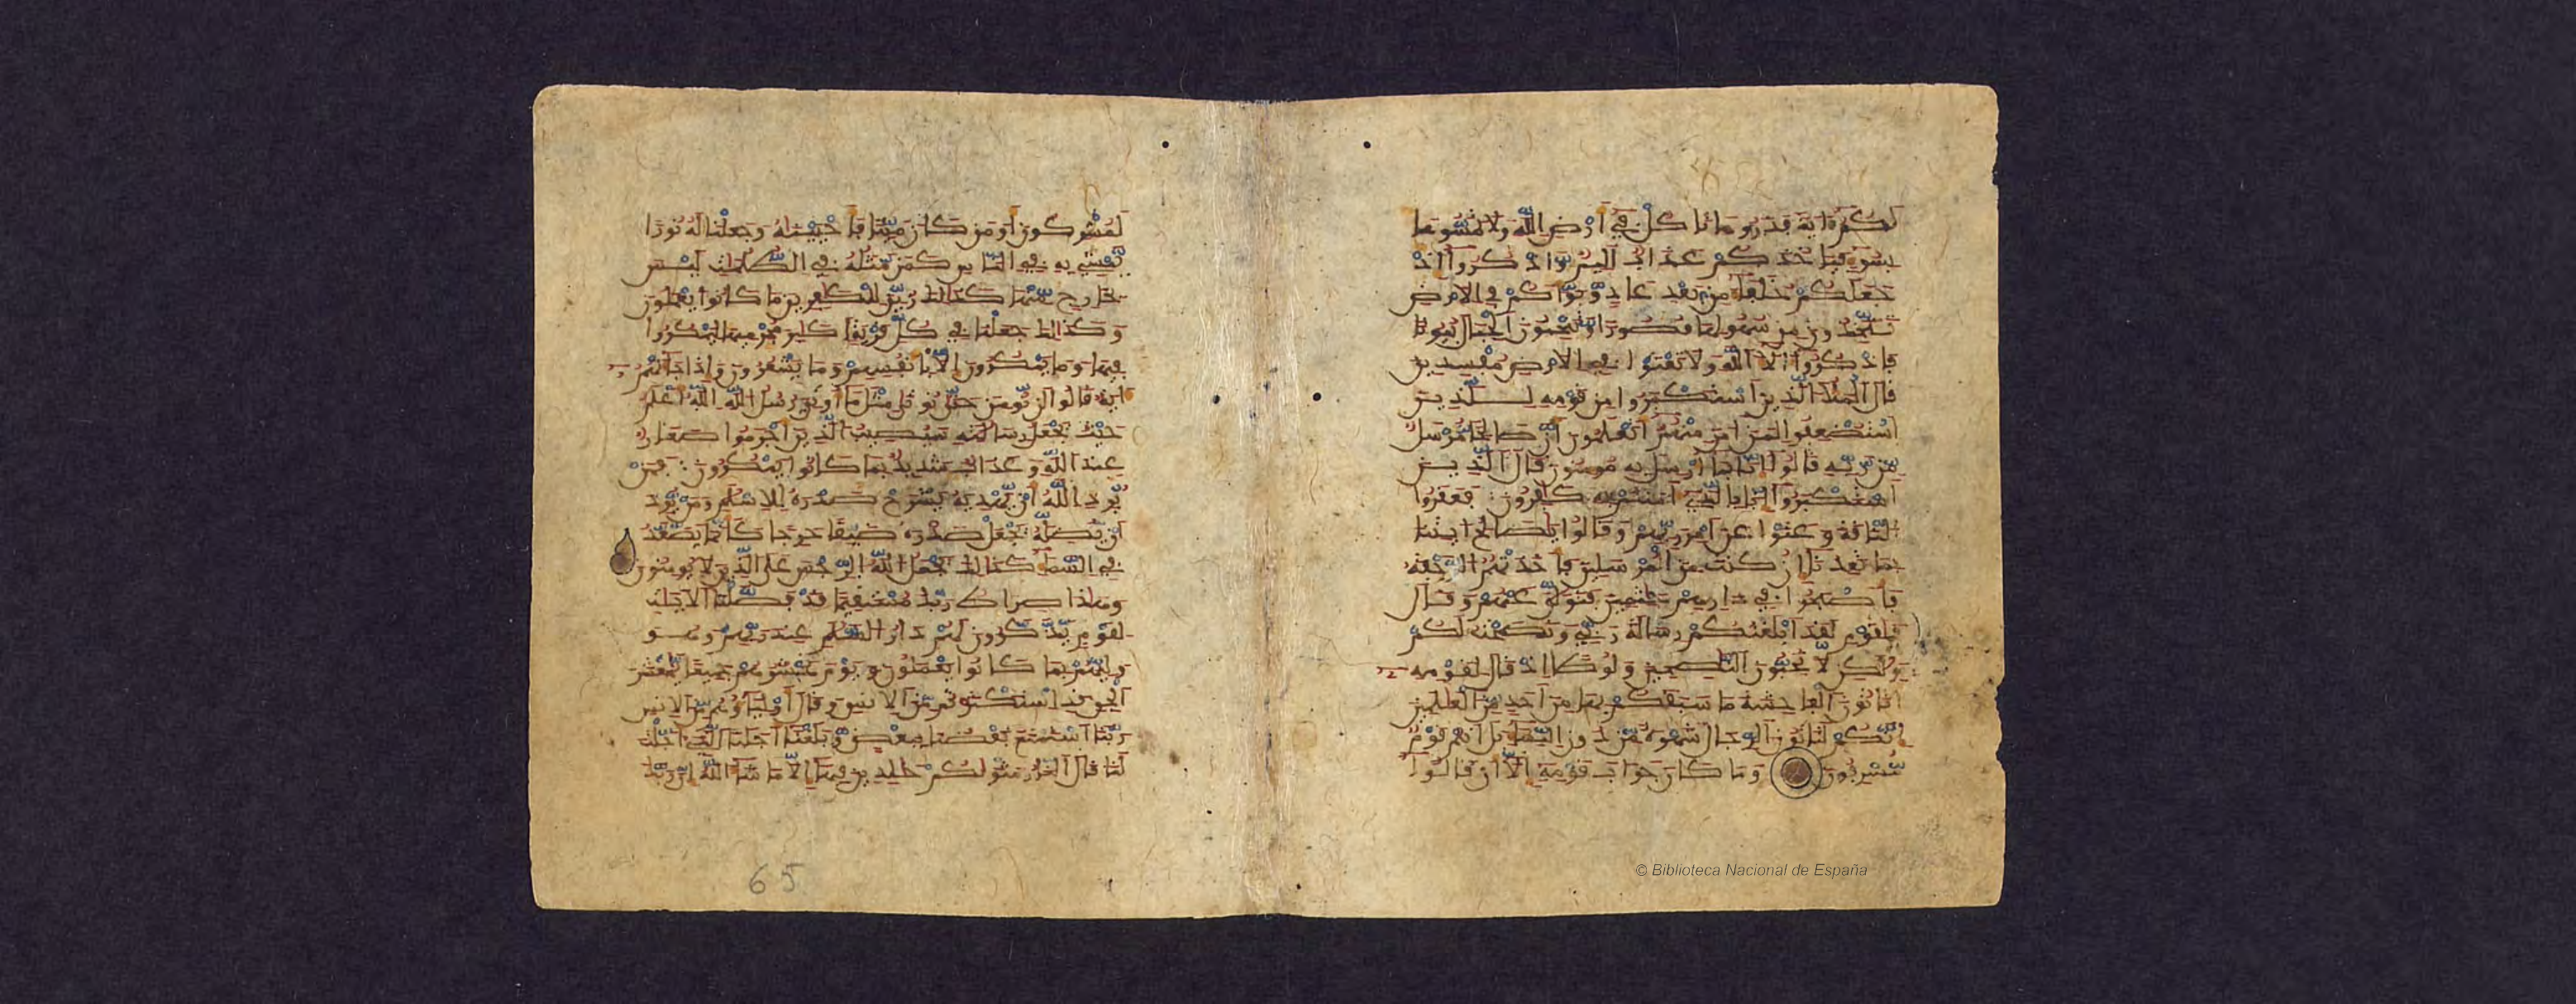 لكم ءاية فذروها تاكل في أرض الله ولا تمسوها
بسوء فياخذكم عذاب أليم واذكروا إذ
جعلكم خلفاء من بعد عاد وبوأكم في الارض
تتخذون من سهولها قصورا وتنحتون الجبال بيوتا
فاذكروا ءالاء الله ولا تعثوا في الارض مفسدين
قال الملأ الذين استكبروا من قومه للذين
استضعفوا لمن امن منهم أتعلمون أن صالحا مرسل
من ربه قالوا إنا بما أرسل به مومنون قال الذين
استكبروا إنا بالذي ءامنتم به كافرون فعقروا
الناقة وعتوا عن امر ربهم وقالوا يصالح ايتنا
بما تعدنا إن كنت من المرسلين فأخذتهم الرجفة
فأصبحوا في دارهم جثمين فتولى عنهم وقال
يقوم لقد ابلغتكم رسالة ربي ونصحت لكم
ولكن لا تحبون النصحين ولوطا إذ قال لقومه
أتاتون الفاحشة ما سبقكم بها من احد من العلمين
إنكم لتاتون الرجال شهوة من دون النساء بل انتم قوم
مسرفون وما كان جواب قومه إلا أن قالوا
لمشركون أومن كان ميتا فأحييناه وجعلنا له نورا
يمشي به في الناس كمن مثله في الظلمات ليس
بخارج منها كذالك زين للكفرين ما كانوا يعملون
وكذالك جعلنا في كل قرية أكبر مجرميها ليمكروا
فيها وما يمكرون إلا بأنفسهم وما يشعرون وإذا جاءتهم
ءاية قالوا لن نومن حتى نوتى مثل ما أوتي رسل الله الله أعلم
حيث يجعل رسالته سيصيب الذين أجرموا صغار
عند الله وعذاب شديد بما كانوا يمكرون فمن
يرد الله أن يهديه يشرح صدره للاسلم ومن يرد
أن يضله يجعل صدره ضيقا حرجا كأنما يصعد
في السماء كذالك يجعل الله الرجس على الذين لا يومنون
وهاذا صراط ربك مستقيما قد فصلنا الايات
لقوم يذكرون لهم دار السلم عند ربهم وهو
وليهم بما كانوا يعملون ويوم نحشرهم جميعا يمعشر
الجن قد استكثرتم من الانس وقال أولياؤهم من الانس
ربنا استمتع بعضنا ببعض وبلغنا أجلنا الذي أجلت
لنا قال النار مثواكم خالدين فيها إلا ما شاء الله إن ربك
65
© Biblioteca Nacional de España